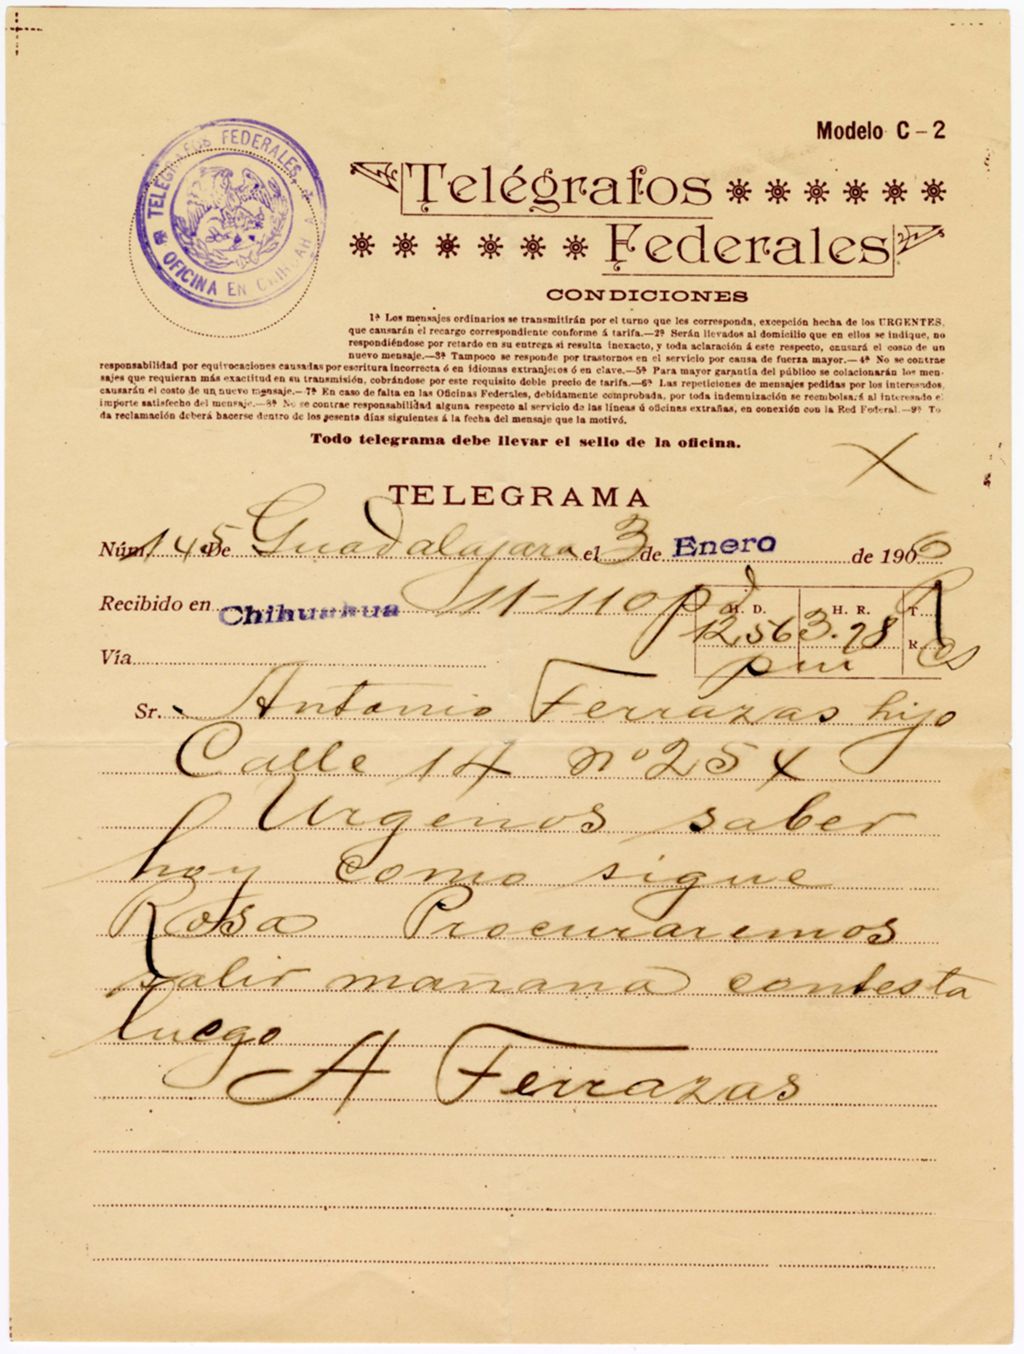 Modelo C-2
TELÉGRAFOS FEDERALES
OFICINA EN CHIHUAHUA
Telégrafos
Federales
CONDICIONES
1ª Los mensajes ordinarios se transmitirán por el turno que les corresponda, excepción hecha de los URGENTES,
que causarán el recargo correspondiente conforme á tarifa.—2ª Serán llevados al domicilio que en ellos se indique, no
respondiéndose por retardo en su entrega si resulta inexacto, y toda aclaración á este respecto, causará el costo de un
nuevo mensaje.—3ª Tampoco se responde por trastornos en el servicio por causa de fuerza mayor.—4ª No se contrae
responsabilidad por equivocaciones causadas por escritura incorrecta ó en idiomas extranjeros ó en clave.—5ª Para mayor garantía del público se colacionarán los men-
sajes que requieran más exactitud en su transmisión, cobrándose por este requisito doble precio de tarifa.—6ª Las repeticiones de mensajes pedidas por los interesados,
causarán el costo de un nuevo mensaje.—7ª En caso de falta en las Oficinas Federales, debidamente comprobada, por toda indemnización se reembolsará al interesado el
importe satisfecho del mensaje.—8ª No se contrae responsabilidad alguna respecto al servicio de las líneas ú oficinas extrañas, en conexión con la Red Federal.—9ª To
da reclamación deberá hacerse dentro de los sesenta días siguientes á la fecha del mensaje que la motivó.
Todo telegrama debe llevar el sello de la oficina.
X
TELEGRAMA
Núm. 145 De Guadalajara el 3 de Enero de 1906
Recibido en Chihuahua 11-110 H. D. H. R. T.
12,56 3. R.
Vía pm
Sr. Antonio Terrazas hijo
Calle 14 nº 254
Urgenos saber
hoy como sigue
Rosa Procuraremos
salir mañana contesta
luego
A Terrazas